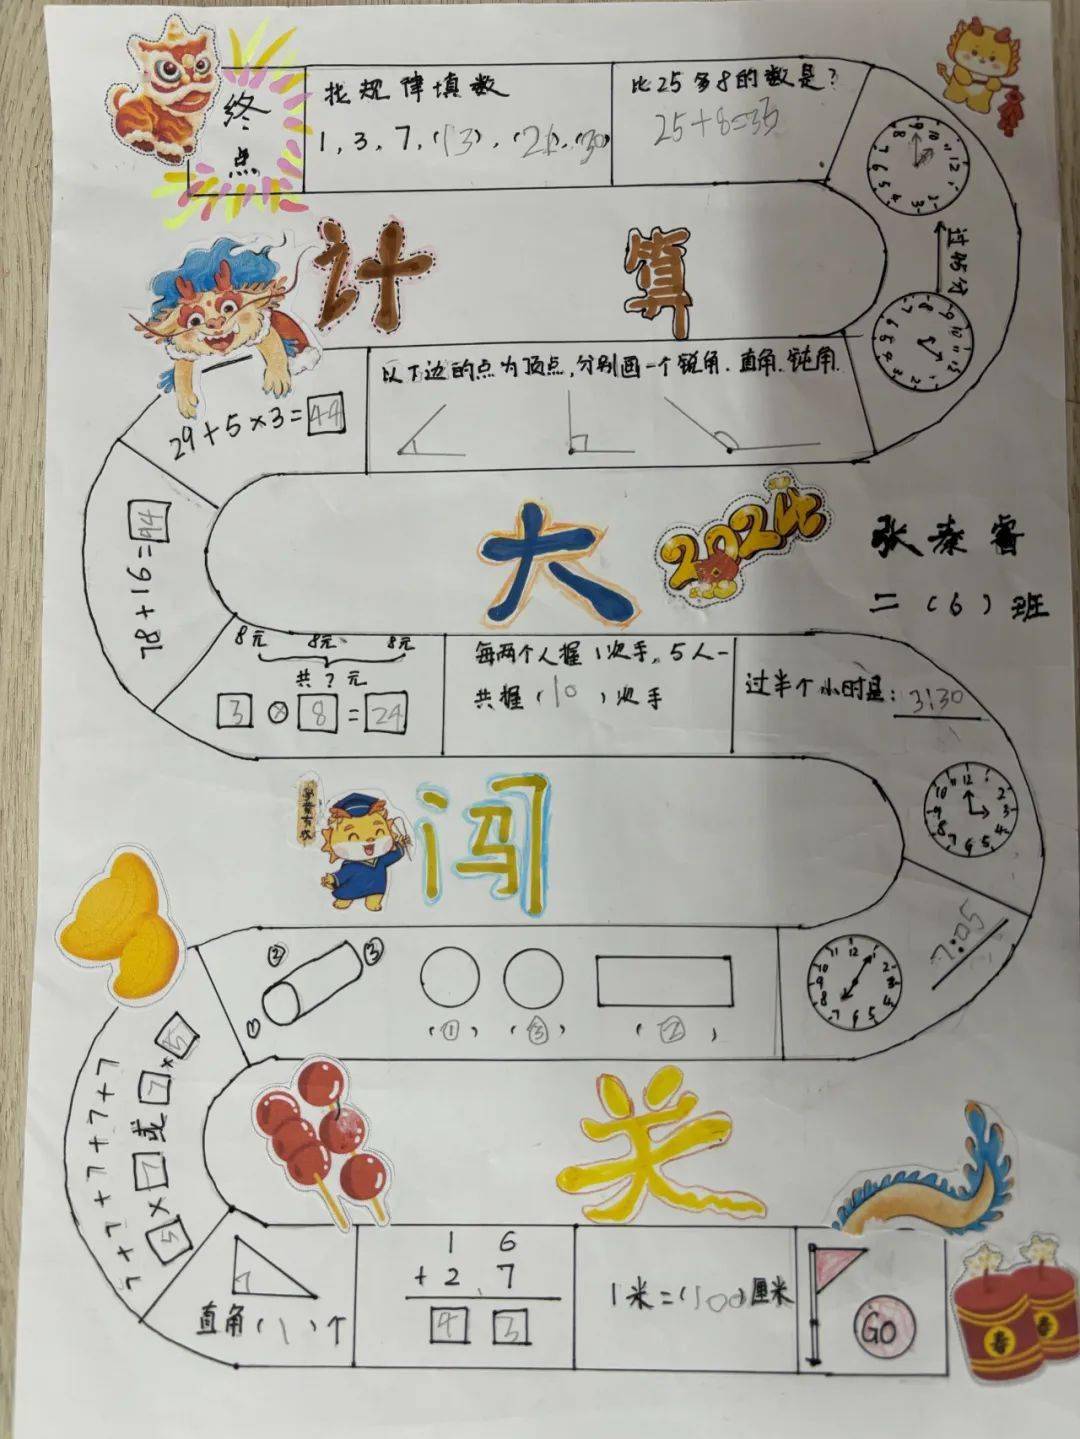 终点
找规律填数
1, 3, 7, (13), (21), (30)
比25多8的数是?
25+8=35
过45分
计算
以下边的点为顶点,分别画一个锐角.直角.钝角.
29+5×3=44
78+16=94
大
2024
张秦睿
二(6)班
8元 8元 8元
共?元
3×8=24
每两个人握1次手,5人一
共握(10)次手
过半个小时是:3:30
闯
② ③
①
(①) (③) (②)
7:05
7+7+7+7+7
5×7或7×5
关
直角(1)个
1 6
+2 7
4 3
1米=(100)厘米
GO
春 春